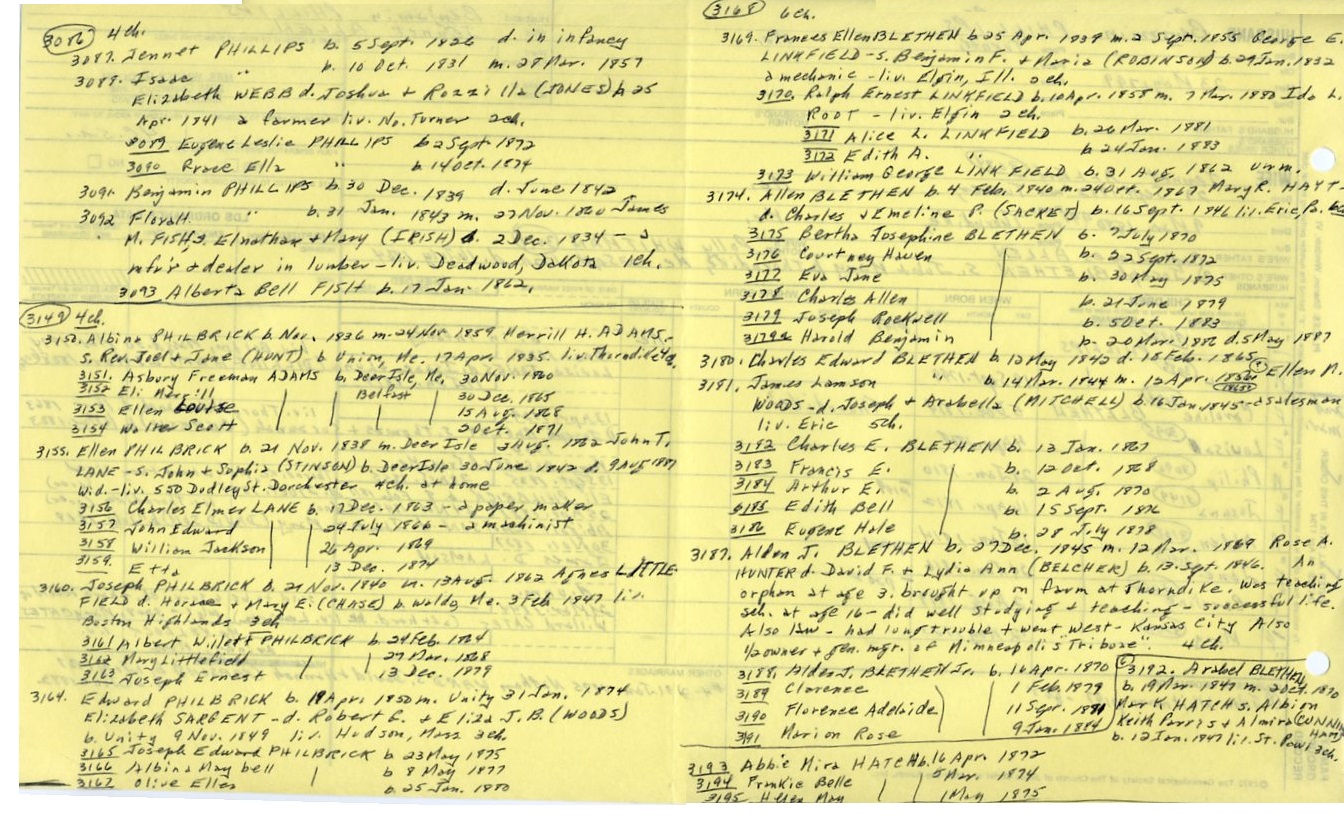 3086 4ch.
3087. Jennet PHILLIPS b. 5 Sept. 1826 d. in infancy
3088. Isaac " b. 10 Oct. 1831 m. 28 Mar. 1857
Elizabeth WEBB d. Joshua + Rozzilla (JONES) b 25
Apr. 1841 a farmer liv. No. Turner 2ch.
3089 Eugene Leslie PHILLIPS b 2 Sept 1872
3090 Grace Ella " b 14 Oct. 1874
3091. Benjamin PHILLIPS b. 30 Dec. 1839 d. June 1842
3092 Flora H. " b. 31 Jan. 1843 m. 27 Nov. 1860 James
M. FISH, s. Elnathan + Mary (IRISH) b. 2 Dec. 1834 - a
mfr's + dealer in lumber - liv. Deadwood, Dakota 1ch.
3093 Alberta Bell FISH b. 17 Jan. 1862.
3149 4ch.
3150. Albina PHILBRICK b. Nov. 1836 m. 24 Nov. 1859 Merrill H. ADAMS.
s. Rev. Joel + Jane (HUNT) b Union, Me. 17 Apr. 1835. liv. Thorndike 4ch.
3151. Asbury Freeman ADAMS b. Deer Isle, Me, 30 Nov. 1860
3152 Eli Merrill Belfast 30 Dec. 1865
3153 Ellen Louise 15 Aug. 1868
3154 Walter Scott 2 Oct. 1871
3155. Ellen PHILBRICK b. 21 Nov. 1838 m. Deer Isle 2 Aug. 1862 John T.
LANE - s. John + Sophia (STINSON) b. Deer Isle 30 June 1842 d. 9 Aug 1887
Wid. - liv. 550 Dudley St. Dorchester 4ch. at home
3156 Charles Elmer LANE b. 17 Dec. 1863 - a paper maker
3157 John Edward 24 July 1866 - a machinist
3158 William Jackson 26 Apr. 1869
3159. Etta 13 Dec. 1874
3160. Joseph PHILBRICK b. 21 Nov. 1840 m. 13 Aug. 1862 Agnes LITTLE-
FIELD d. Horace + Mary E. (CHASE) b. Waldo, Me. 3 Feb 1847 liv.
Boston Highlands 3ch
3161 Albert Willett PHILBRICK b 24 Feb. 1864
3162 Mary Littlefield 27 Mar. 1868
3163 Joseph Ernest 13 Dec. 1879
3164. Edward PHILBRICK b. 19 Apr. 1850 m. Unity 31 Jan. 1874
Elizabeth SARGENT - d. Robert G. + Eliza J. B. (WOODS)
b. Unity 9 Nov. 1849 liv. Hudson, Mass 3ch.
3165 Joseph Edward PHILBRICK b 23 May 1875
3166 Albina May bell b 8 May 1877
3167 Olive Ellen b 25 Jan. 1880
3168 6ch.
3169. Frances Ellen BLETHEN b 25 Apr. 1839 m. 2 Sept. 1855 George E.
LINKFIELD - s. Benjamin F. + Maria (ROBINSON) b. 29 Jan. 1832
a mechanic - liv. Elgin, Ill. 2ch.
3170. Ralph Ernest LINKFIELD b. 10 Apr. 1858 m. 7 Mar. 1880 Ida L.
ROOT - liv. Elgin 2ch.
3171 Alice L. LINKFIELD b. 26 Mar. 1881
3172 Edith A. " b 24 Jan. 1883
3173 William George LINKFIELD b. 31 Aug. 1862 unm.
3174. Allen BLETHEN b. 4 Feb. 1840 m. 24 Oct. 1867 Mary R. HAYT
d. Charles + Emeline P. (SACKET) b. 16 Sept. 1846 liv. Erie, Pa. 6ch
3175 Bertha Josephine BLETHEN b. 7 July 1870
3176 Courtney Haven b. 22 Sept. 1872
3177 Eva Jane b. 30 May 1875
3178 Charles Allen b. 21 June 1879
3179 Joseph Rockwell b. 5 Oct. 1883
3179a Harold Benjamin b. 20 Mar. 1886 d. 5 May 1887
3180. Charles Edward BLETHEN b. 12 May 1842 d. 18 Feb. 1865
3181. James Lamson " b. 14 Mar. 1844 m. 12 Apr. Ellen M.
WOODS - d. Joseph + Arabella (MITCHELL) b. 16 Jan. 1845 - a salesman
liv. Erie 5ch.
3182 Charles E. BLETHEN b. 13 Jan. 1867
3183 Francis E. b. 12 Oct. 1868
3184 Arthur E. b. 2 Aug. 1870
3185 Edith Bell b. 15 Sept. 1876
3186 Eugene Hale b. 28 July 1878
3187. Alden J. BLETHEN b. 27 Dec. 1845 m. 12 Mar. 1869 Rose A.
HUNTER d. David F. + Lydia Ann (BELCHER) b. 13 Sept. 1846. An
orphan at age 3. brought up on farm at Thorndike. Was teaching
sch. at age 16 - did well studying + teaching - successful life.
Also law - had lung trouble + went west - Kansas City Also
1/2 owner + gen. mgr. of Minneapolis "Tribune". 4ch.
3188. Alden J. BLETHEN Jr. b. 16 Apr. 1870
3189 Clarence 1 Feb. 1879
3190 Florence Adelaide 11 Sept. 1881
3191 Marion Rose 9 Jan. 1884
3192. Arabel BLETHEN
b. 19 Mar. 1847 m. 2 Oct. 1870
Mark HATCH s. Albion
Keith Parris + Almira (CUNNING
HAM)
b. 12 Jan. 1847 liv. St. Paul 3ch.
3193 Abbie Mira HATCH b. 16 Apr. 1872
3194 Frankie Belle 5 Mar. 1874
3195 Helen May 1 May 1875